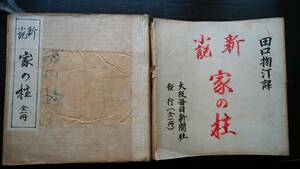 新小説
家の柱
全一冊
田口掬汀譯
新小説
家の柱
大阪毎日新聞社
發行(全一冊)